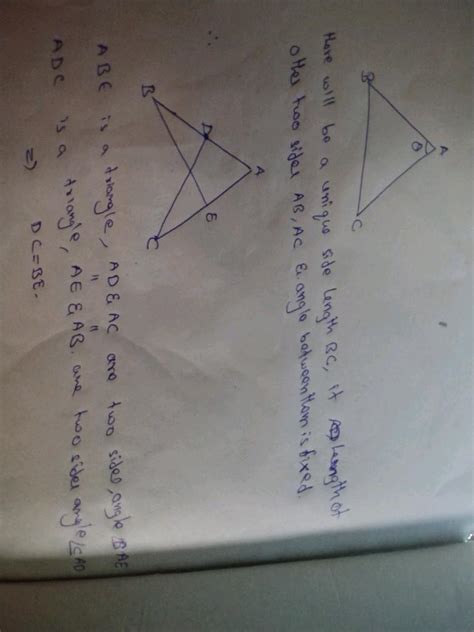 A
θ
B
C
there will be a unique side length BC, if length of
other two sides AB, AC & angle between them is fixed.
∴
A
D
E
B
C
ABE is a triangle, AD & AC are two sides, angle BAE
ADC is a triangle, AE & AB are two sides angle ∠CAD
⇒ DC = BE.